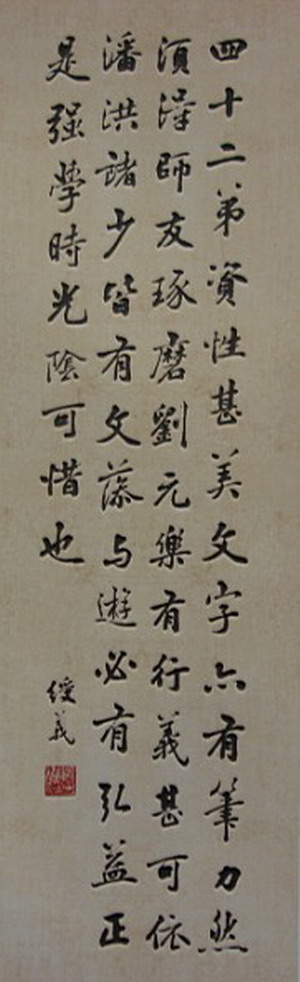 四十二弟資性甚美文字亦有筆力然
須得師友琢磨劉元樂有行義甚可依
潘洪諸少皆有文藻与遊必有弘益正
是强學時光陰可惜也
綬義